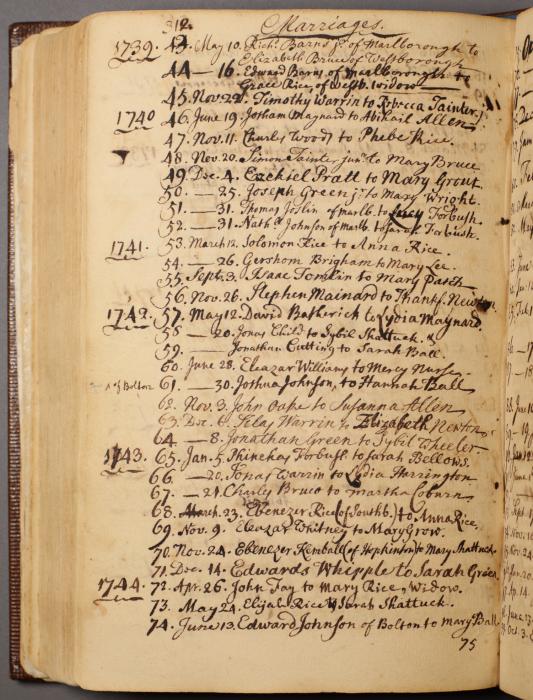 12. Marriages.
1739. 43. May 10. Rich. Barns jr. of Marlborough to
Elizabeth Bruce of Westborough
44 — 16. Edward Barns of Marlborough to
Grace Rice of Westb. widow
45. Nov. 22. Timothy Warrin to Rebecca Tainter.
1740 46. June 19. Jotham Maynard to Abigail Allen
47. Nov. 11. Charles Wood to Phebe Rice.
48. Nov. 20. Simon Tainter junr. to Mary Bruce
49. Dec. 4. Ezekiel Pratt to Mary Grout.
50. — 25. Joseph Green jr. to Mary Wright.
51. — 31. Thomas Joslin of marlb. to Lucy Forbush.
52. — 31. Nathl Johnson of marlb. to Sarah Forbush.
1741. 53. March 12. Solomon Rice to Anna Rice.
54. — 26. Gershom Brigham to Mary Lee.
55. Sept. 3. Isaac Tomlin to Mary Patch
56. Nov. 26. Stephen Mainard to Thankf. Newton.
1742. 57. May 12. David Batherick to Lydia Maynard
58 — 20. Jonas Child to Sybil Shattuck. &
59. — Jonathan Cutting to Sarah Ball.
60. June 28. Eleazar Williams to Mercy Nurse.
of Bolton 61. — 30. Joshua Johnson, to Hannah Ball
62. Nov. 3. John Oake to Susanna Allen
63. Dec. 6. Silas Warrin to Elizabeth Newton.
64. — 8. Jonathan Green to Sybil Wheeler
1743. 65. Jan. 5. Phinehas Forbush to Sarah Bellows.
66 — 20. Jonas Warrin to Lydia Harrington
67. — 21. Charles Bruce to Martha Coburn
68. March. 23. Ebenezer Rice (of Southb.) to Anna Rice.
69. Nov. 9. Eleazar Whitney to Mary Grow.
70. Nov. 24. Ebenezer Kemball (of Hopkinton) to Mary Shattuck
71. Dec. 14. Edwards Whipple to Sarah Green
1744. 72. Apr. 26. John Fay to Mary Rice, Widow.
73. May 24. Elijah Rice & Sarah Shattuck.
74. June 13. Edward Johnson of Bolton to Mary Ball
75